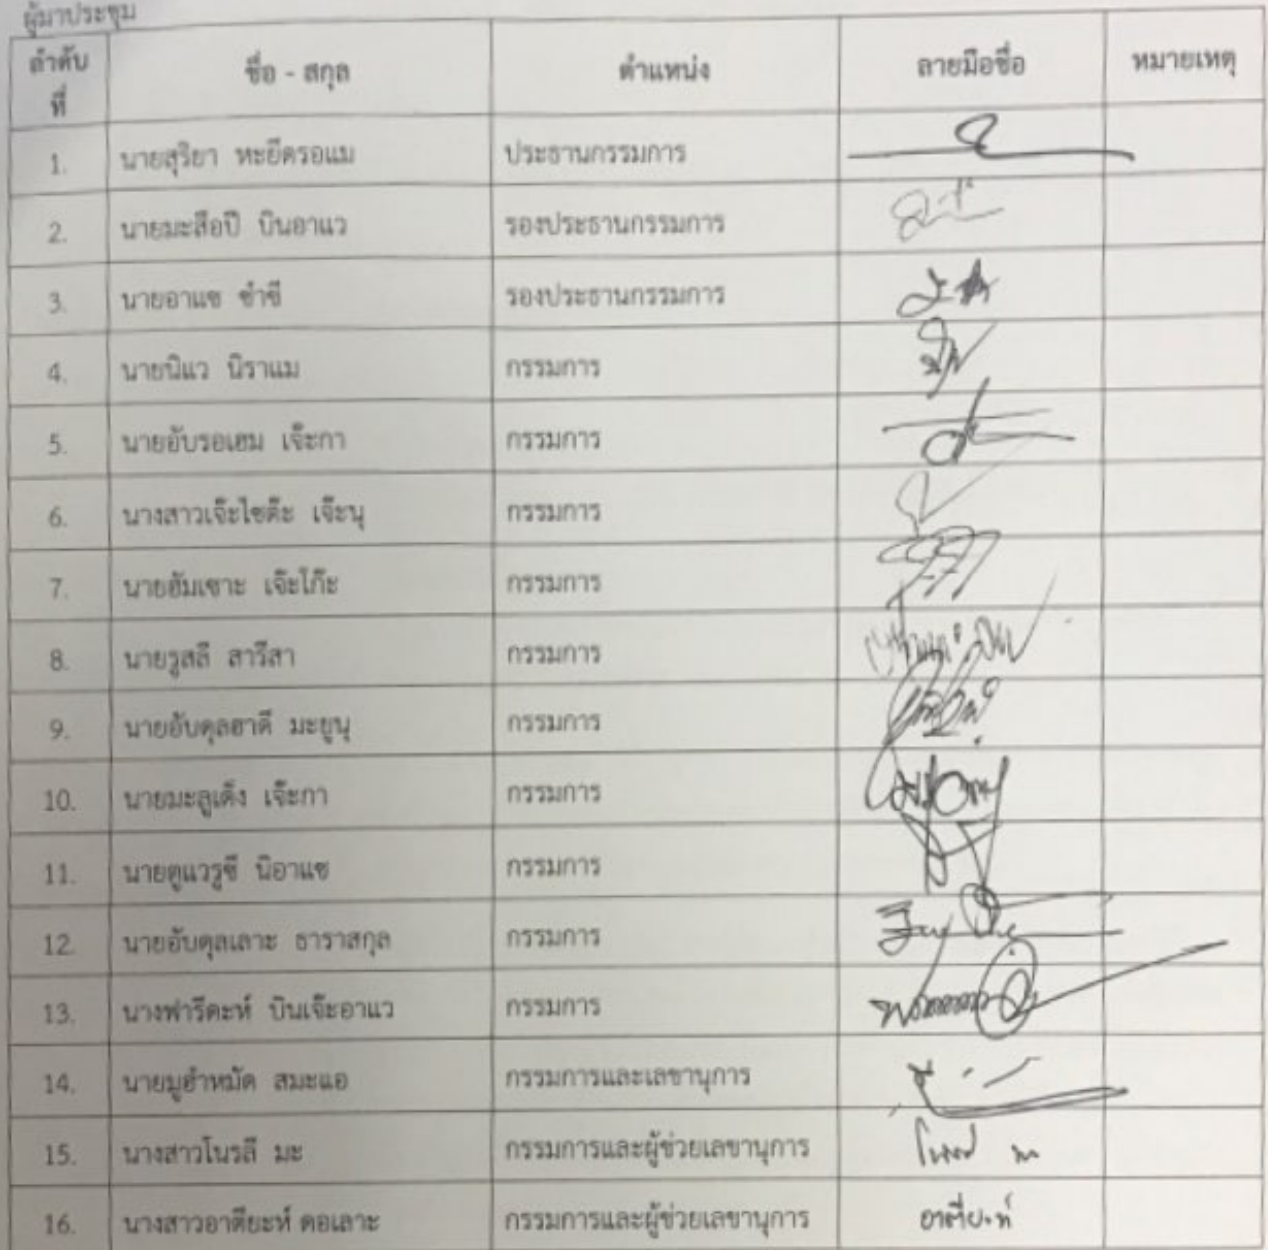 ผู้มาประชุม
ลำดับที่ ชื่อ - สกุล ตำแหน่ง ลายมือชื่อ หมายเหตุ
1. นายสุริยา หะยีดรอแม ประธานกรรมการ
2. นายมะสือปี บินอาแว รองประธานกรรมการ
3. นายอาแซ ซำซี รองประธานกรรมการ
4. นายนิแว นิราแม กรรมการ
5. นายอับรอเฮม เจ๊ะกา กรรมการ
6. นางสาวเจ๊ะไซต๊ะ เจ๊ะนุ กรรมการ
7. นายฮัมเซาะ เจ๊ะโก๊ะ กรรมการ
8. นายรูสลี สารีสา กรรมการ
9. นายอับดุลฮาดี มะยูนุ กรรมการ
10. นายมะลูเด็ง เจ๊ะกา กรรมการ
11. นายตูแวรูซี นิอาแซ กรรมการ
12. นายอับดุลเลาะ ธาราสกุล กรรมการ
13. นางฟารีดะห์ บินเจ๊ะอาแว กรรมการ
14. นายมูฮำหมัด สมะแอ กรรมการและเลขานุการ
15. นางสาวโนรลี มะ กรรมการและผู้ช่วยเลขานุการ
16. นางสาวอาตียะห์ ดอเลาะ กรรมการและผู้ช่วยเลขานุการ อาตียะห์